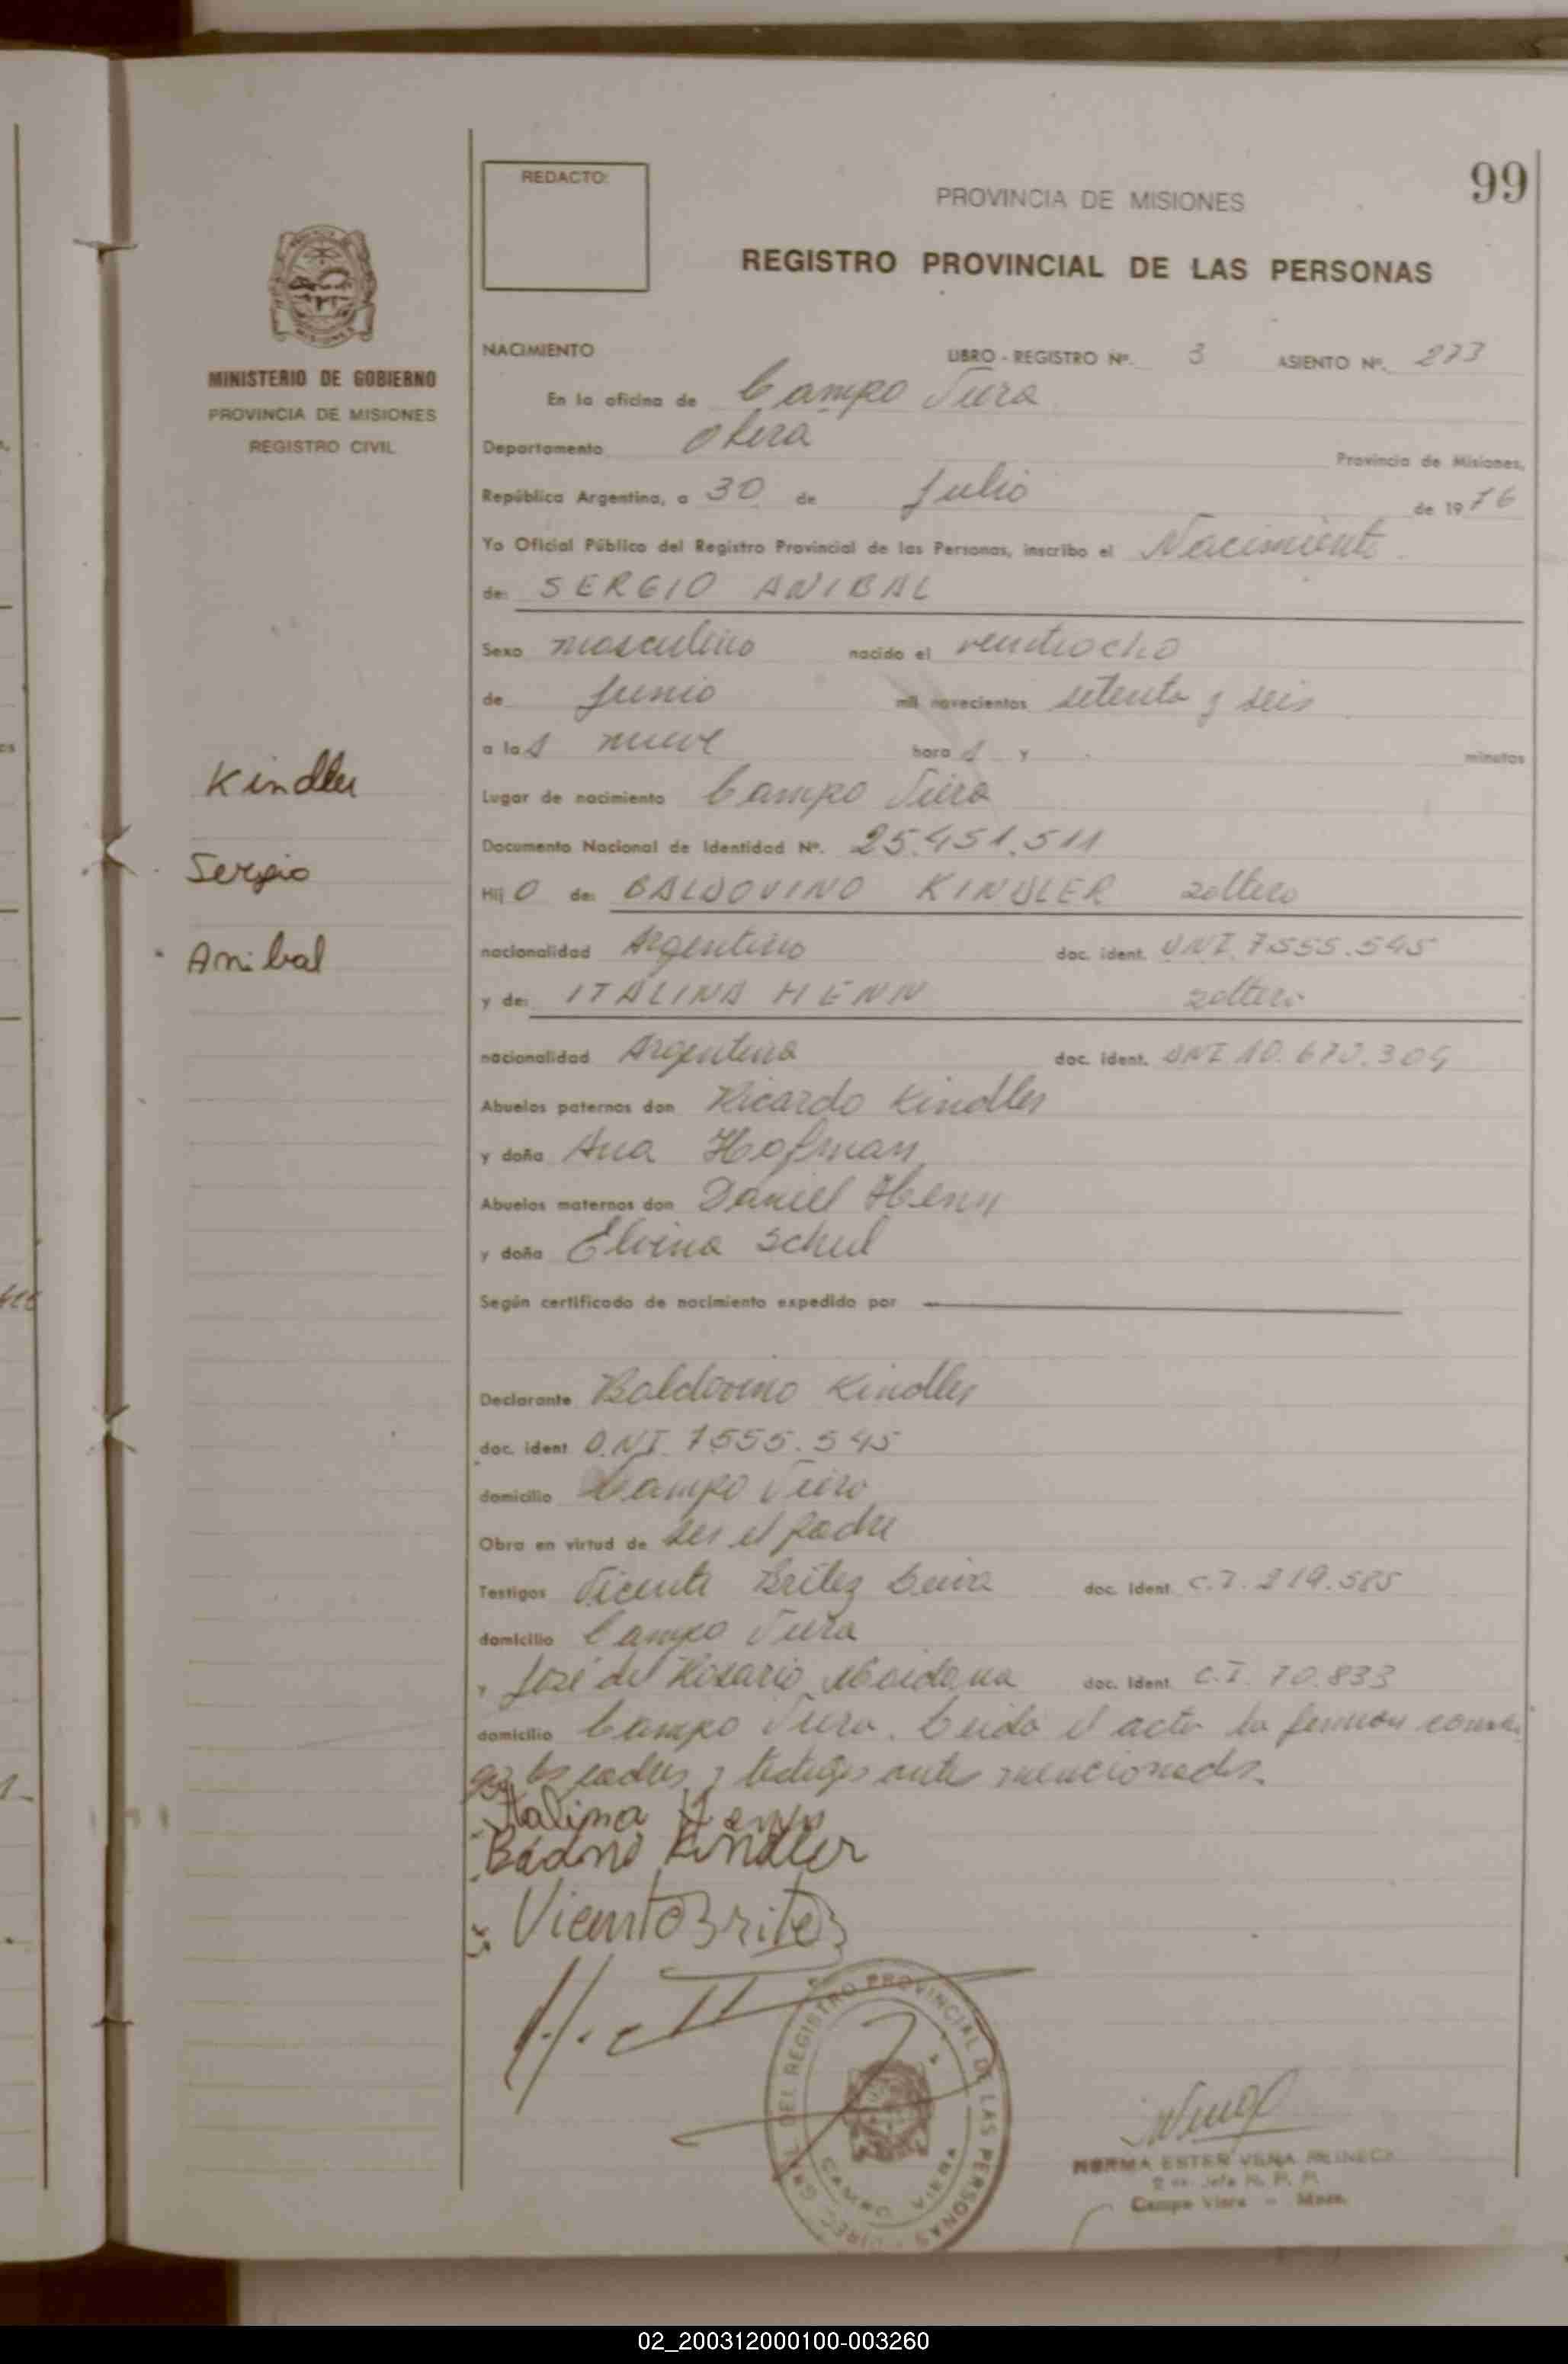 99
REDACTO:
PROVINCIA DE MISIONES
REGISTRO PROVINCIAL DE LAS PERSONAS
MINISTERIO DE GOBIERNO
PROVINCIA DE MISIONES
REGISTRO CIVIL
Kindler
Sergio
Anibal
NACIMIENTO LIBRO - REGISTRO Nº. 3 ASIENTO Nº. 273
En la oficina de Campo Viera
Departamento Oberá Provincia de Misiones,
República Argentina, a 30 de Julio de 1976
Yo Oficial Público del Registro Provincial de las Personas, inscribo el Nacimiento
de: SERGIO ANIBAL
Sexo masculino nacido el veintiocho
de Junio mil novecientos setenta y seis
a las nueve horas y minutos
Lugar de nacimiento Campo Viera
Documento Nacional de Identidad Nº. 25.451.511
Hijo de: BALDOVINO KINDLER soltero
nacionalidad Argentino doc. ident. DNI 7555.545
y de: ITALINA HENN soltera
nacionalidad Argentina doc. ident. DNI 10.670.304
Abuelos paternos don Ricardo Kindler
y doña Ana Hofman
Abuelos maternos don Daniel Henn
y doña Elvina Schul
Según certificado de nacimiento expedido por
Declarante Baldovino Kindler
doc. ident D.N.I. 7555.545
domicilio Campo Viera
Obra en virtud de ser el padre
Testigos Vicente Britez doc. Ident C.I. 219.585
domicilio Campo Viera
y José del Rosario Maidana doc. Ident C.I. 70.833
domicilio Campo Viera. Leida el acta la firman
los padres y testigos antes mencionados.
Italina Henn
Kindler
Vicente Britez
DEL REGISTRO PROVINCIAL DE LAS PERSONAS
CAMPO VIERA
NORMA ESTER VERA REINECK
Campo Viera - Mnes.
02_200312000100-003260